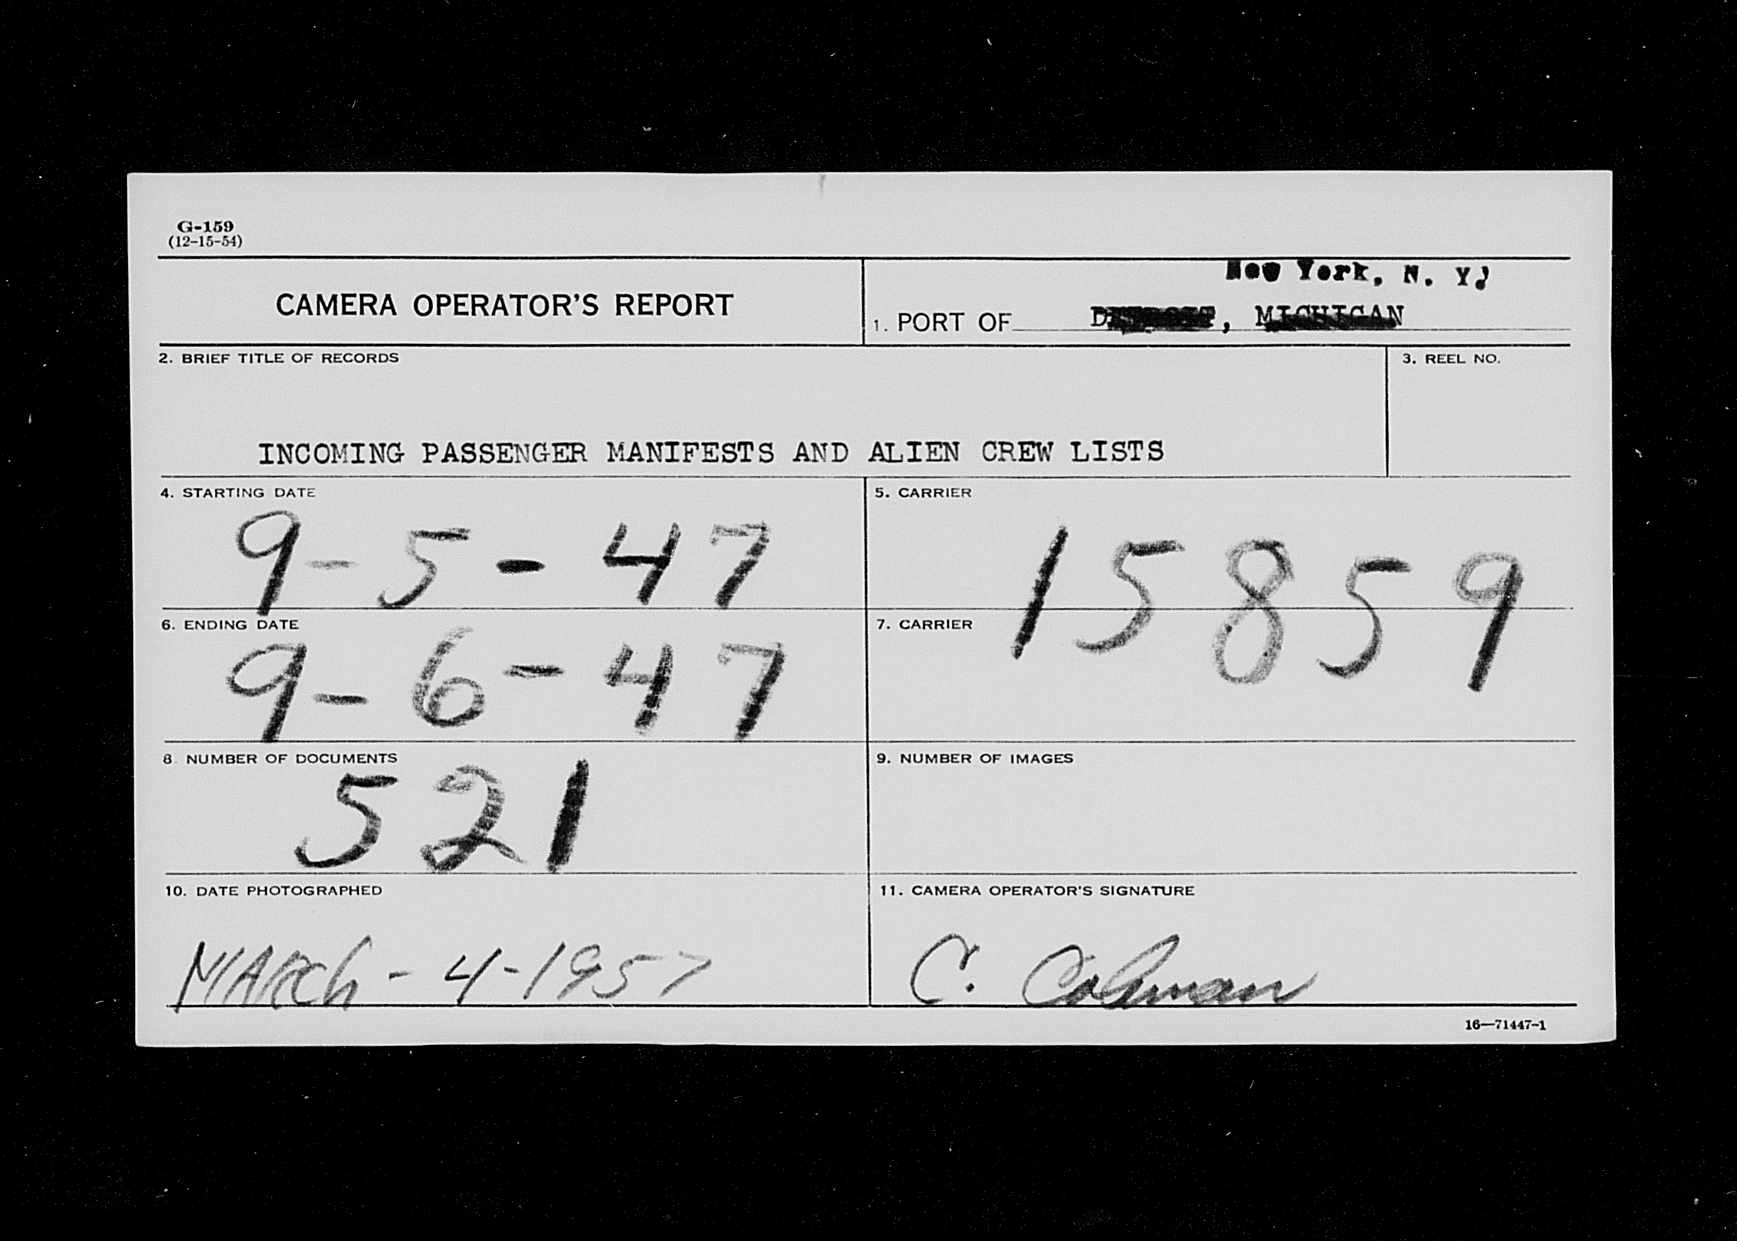 G-159
(12-15-54)
CAMERA OPERATOR'S REPORT
New York, N. Y.
1. PORT OF DETROIT, MICHIGAN
2. BRIEF TITLE OF RECORDS
INCOMING PASSENGER MANIFESTS AND ALIEN CREW LISTS
3. REEL NO.
4. STARTING DATE
9-5-47
5. CARRIER
15859
6. ENDING DATE
9-6-47
7. CARRIER
8 NUMBER OF DOCUMENTS
521
9. NUMBER OF IMAGES
10. DATE PHOTOGRAPHED
MARCh-4-1957
11. CAMERA OPERATOR'S SIGNATURE
C. Colman
16—71447-1